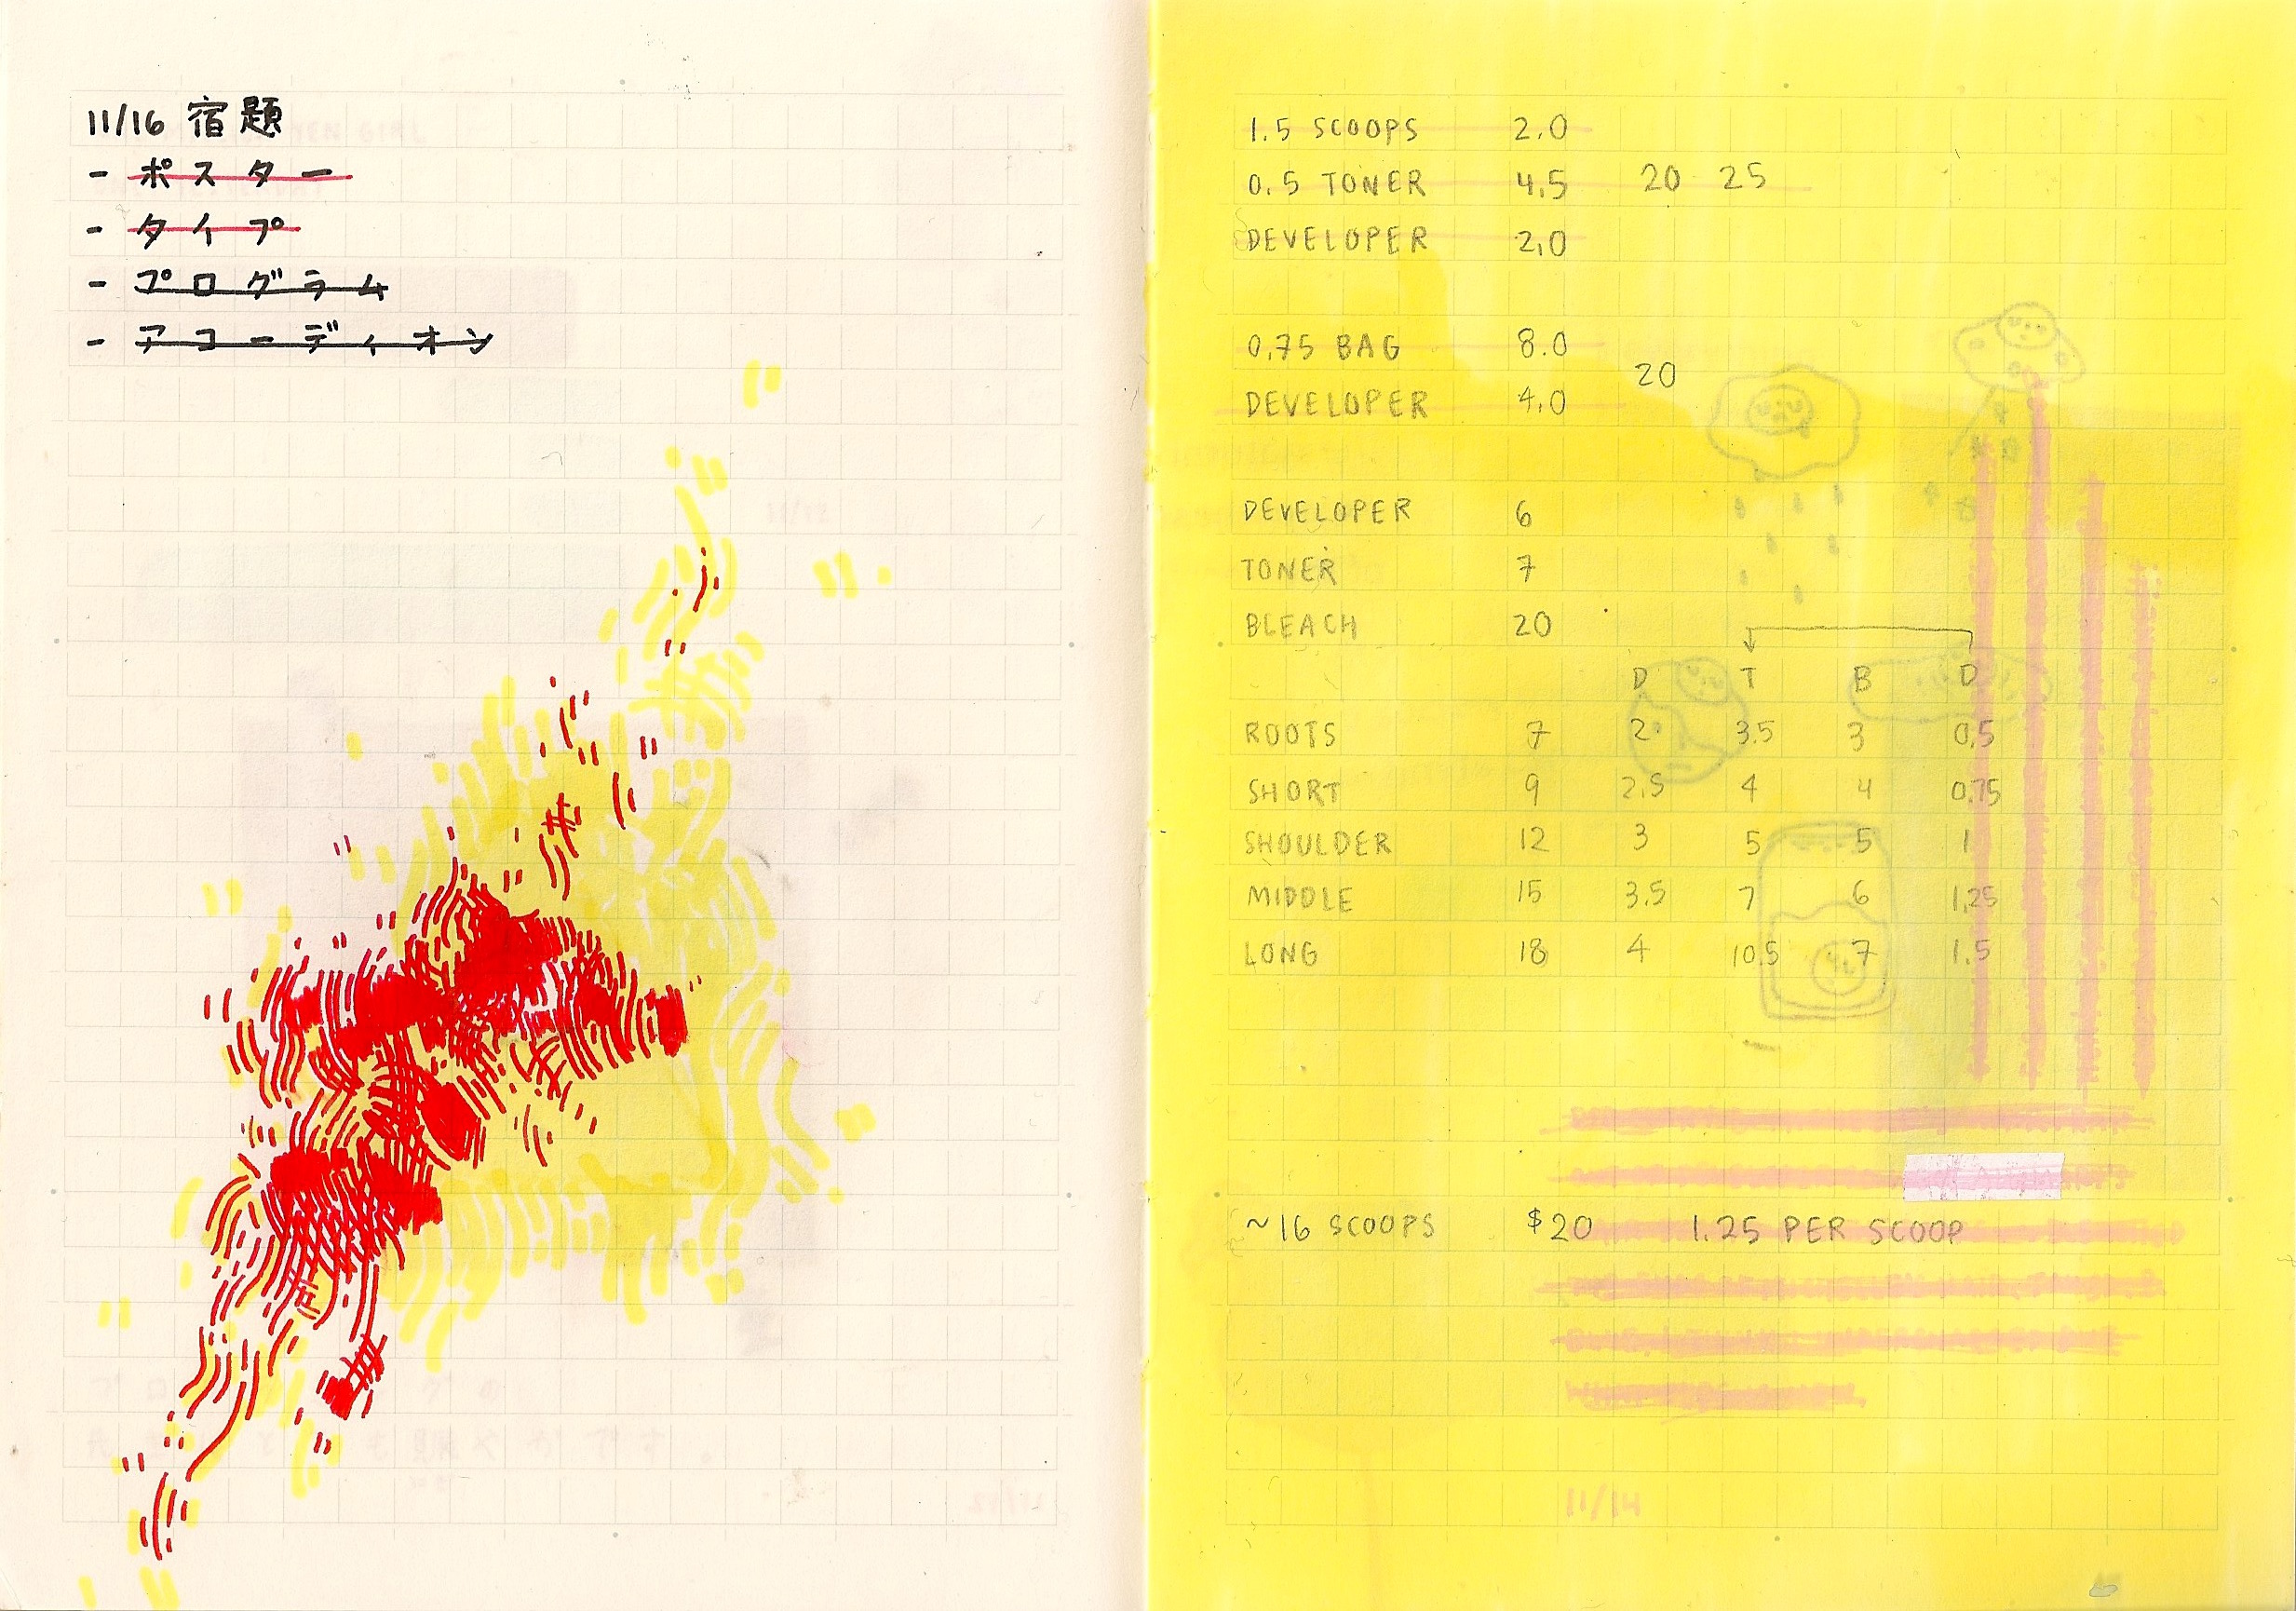 11/16 宿題
- ポスター
- タイプ
- プログラム
- アコーディオン
1.5 SCOOPS 2.0
0.5 TONER 4.5 20 25
DEVELOPER 2.0
0.75 BAG 8.0
20
DEVELOPER 4.0
DEVELOPER 6
TONER 7
BLEACH 20
D T B D
ROOTS 7 2 3.5 3 0.5
SHORT 9 2.5 4 4 0.75
SHOULDER 12 3 5 5 1
MIDDLE 15 3.5 7 6 1.25
LONG 18 4 10.5 7 1.5
~16 SCOOPS $20 1.25 PER SCOOP
11/14